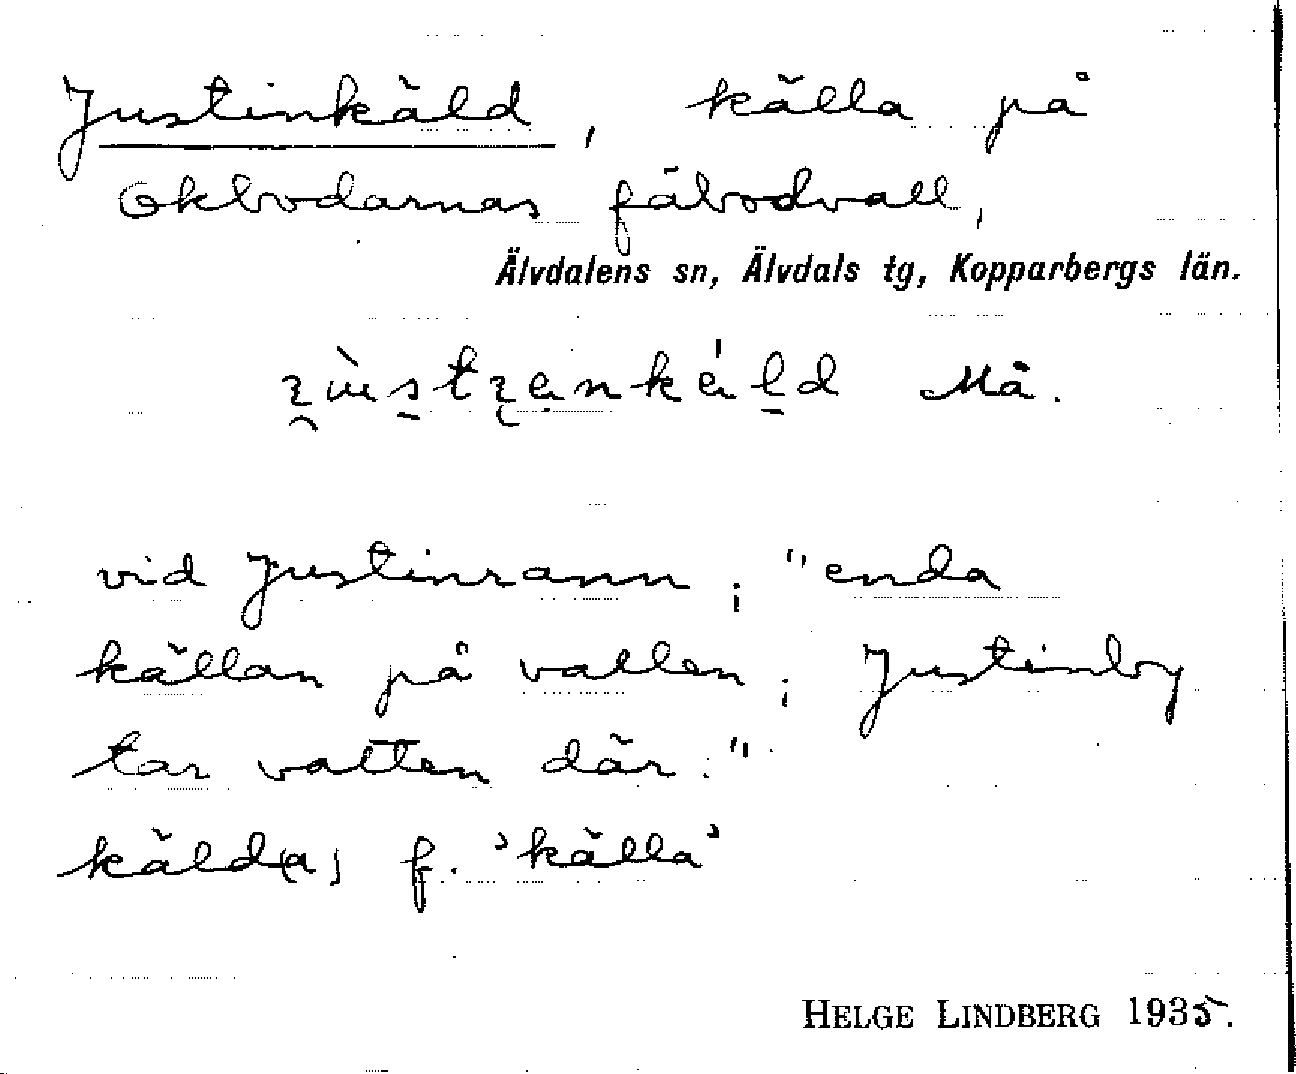 Justinkäld, källa på
Okbodarnas fäbodvall,
Älvdalens sn, Älvdals tg, Kopparbergs län.
Må.
vid Justinrann; "enda
källan på vallen; Justinby
tar vatten där."
käld(a) f. 'källa'
HELGE LINDBERG 1935.